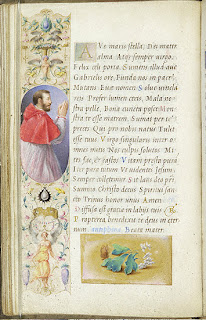 Ave maris stella, Dei mater
alma Atq; semper virgo.
Felix celi porta. Sumens illud ave
Gabrielis ore, Funda nos in pace
Mutans Evæ nomen Solve vincla
reis Profer lumen cæcis, Mala no
stra pelle, Bona cuncta posce Mon
stra te esse matrem, Sumat per te
preces Qui pro nobis natus Tulit
esse tuus Virgo singularis inter o
mnes mitis Nos culpis solutos Mi
tes fac, et castos Vitam presta pura
Iter para tutum Ut videntes Jesum
Semper colletemur Sit laus deo pri
Summo Christo decus Spiritui san
cto Trinus honor unus Amen
Diffusa est gratia in labiis tuis
Propterea benedixit te deus in eter
num. Beata mater.